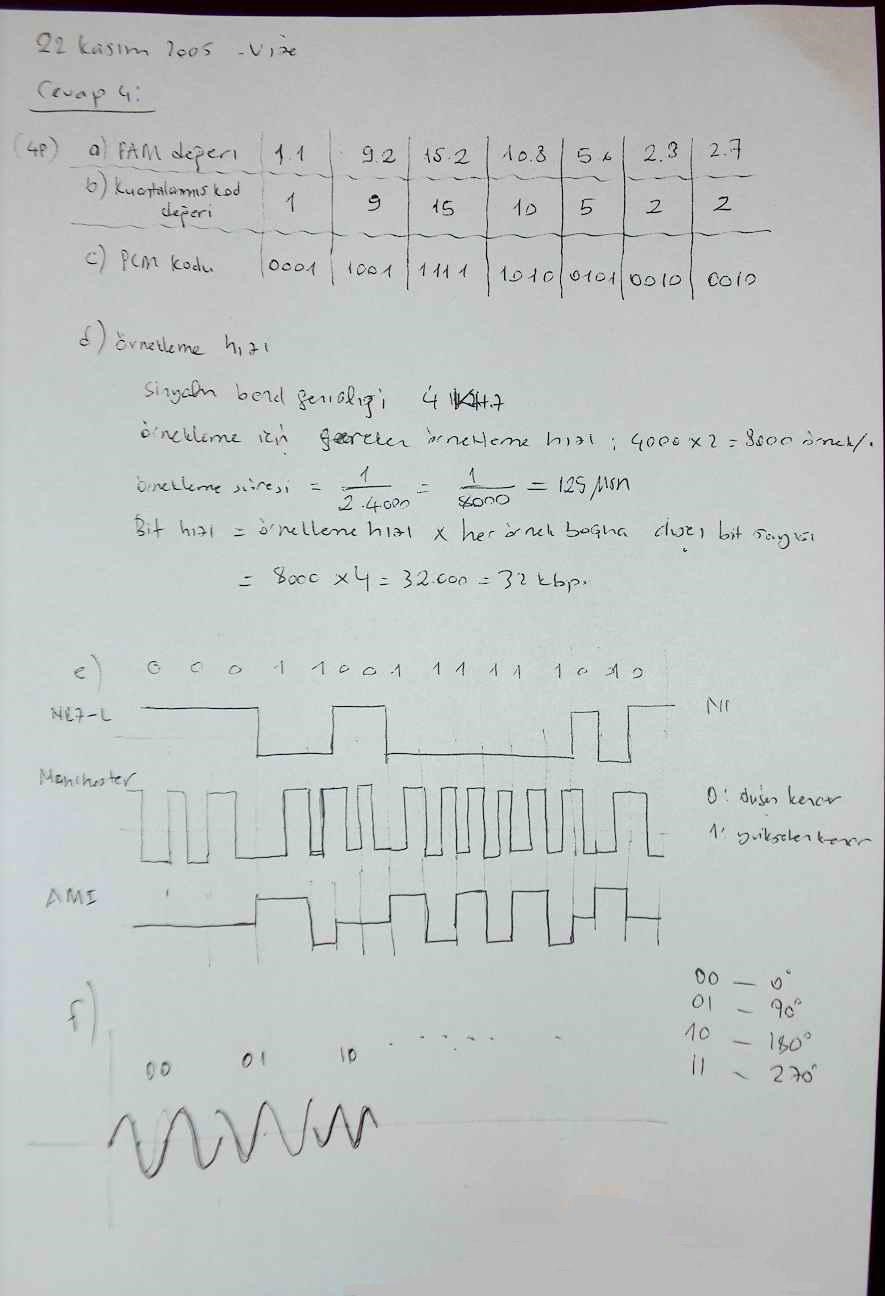 22 Kasım 2005 - Vize
Cevap 4:
(4P) a) PAM değeri 1.1 9.2 15.2 10.8 2.8 2.7
b) Kuantalanmış kod değeri 1 9 15 10 5 2 2
c) PCM kodu 0001 1001 1111 1010 0101 0010 0010
d) örnekleme hızı
Sinyalin band genişliği 4 KHz
örnekleme için gereken örnekleme hızı ; 4000 x 2 = 8000 örnek/.
örnekleme süresi = 1 / 2.4000 = 1 / 8000 = 125 µsn
Bit hızı = örnekleme hızı x her örnek başına düşen bit sayısı
= 8000 x 4 = 32.000 = 32 kbp.
e) 0 0 0 1 1 0 0 1 1 1 1 1 1 0 1 0
NRZ-L
Manchester 0: düşen kenar
1: yükselen kenar
AMI
f)
00 — 0°
01 - 90°
10 - 180°
11 - 270°
00 01 10 . . . . . . .